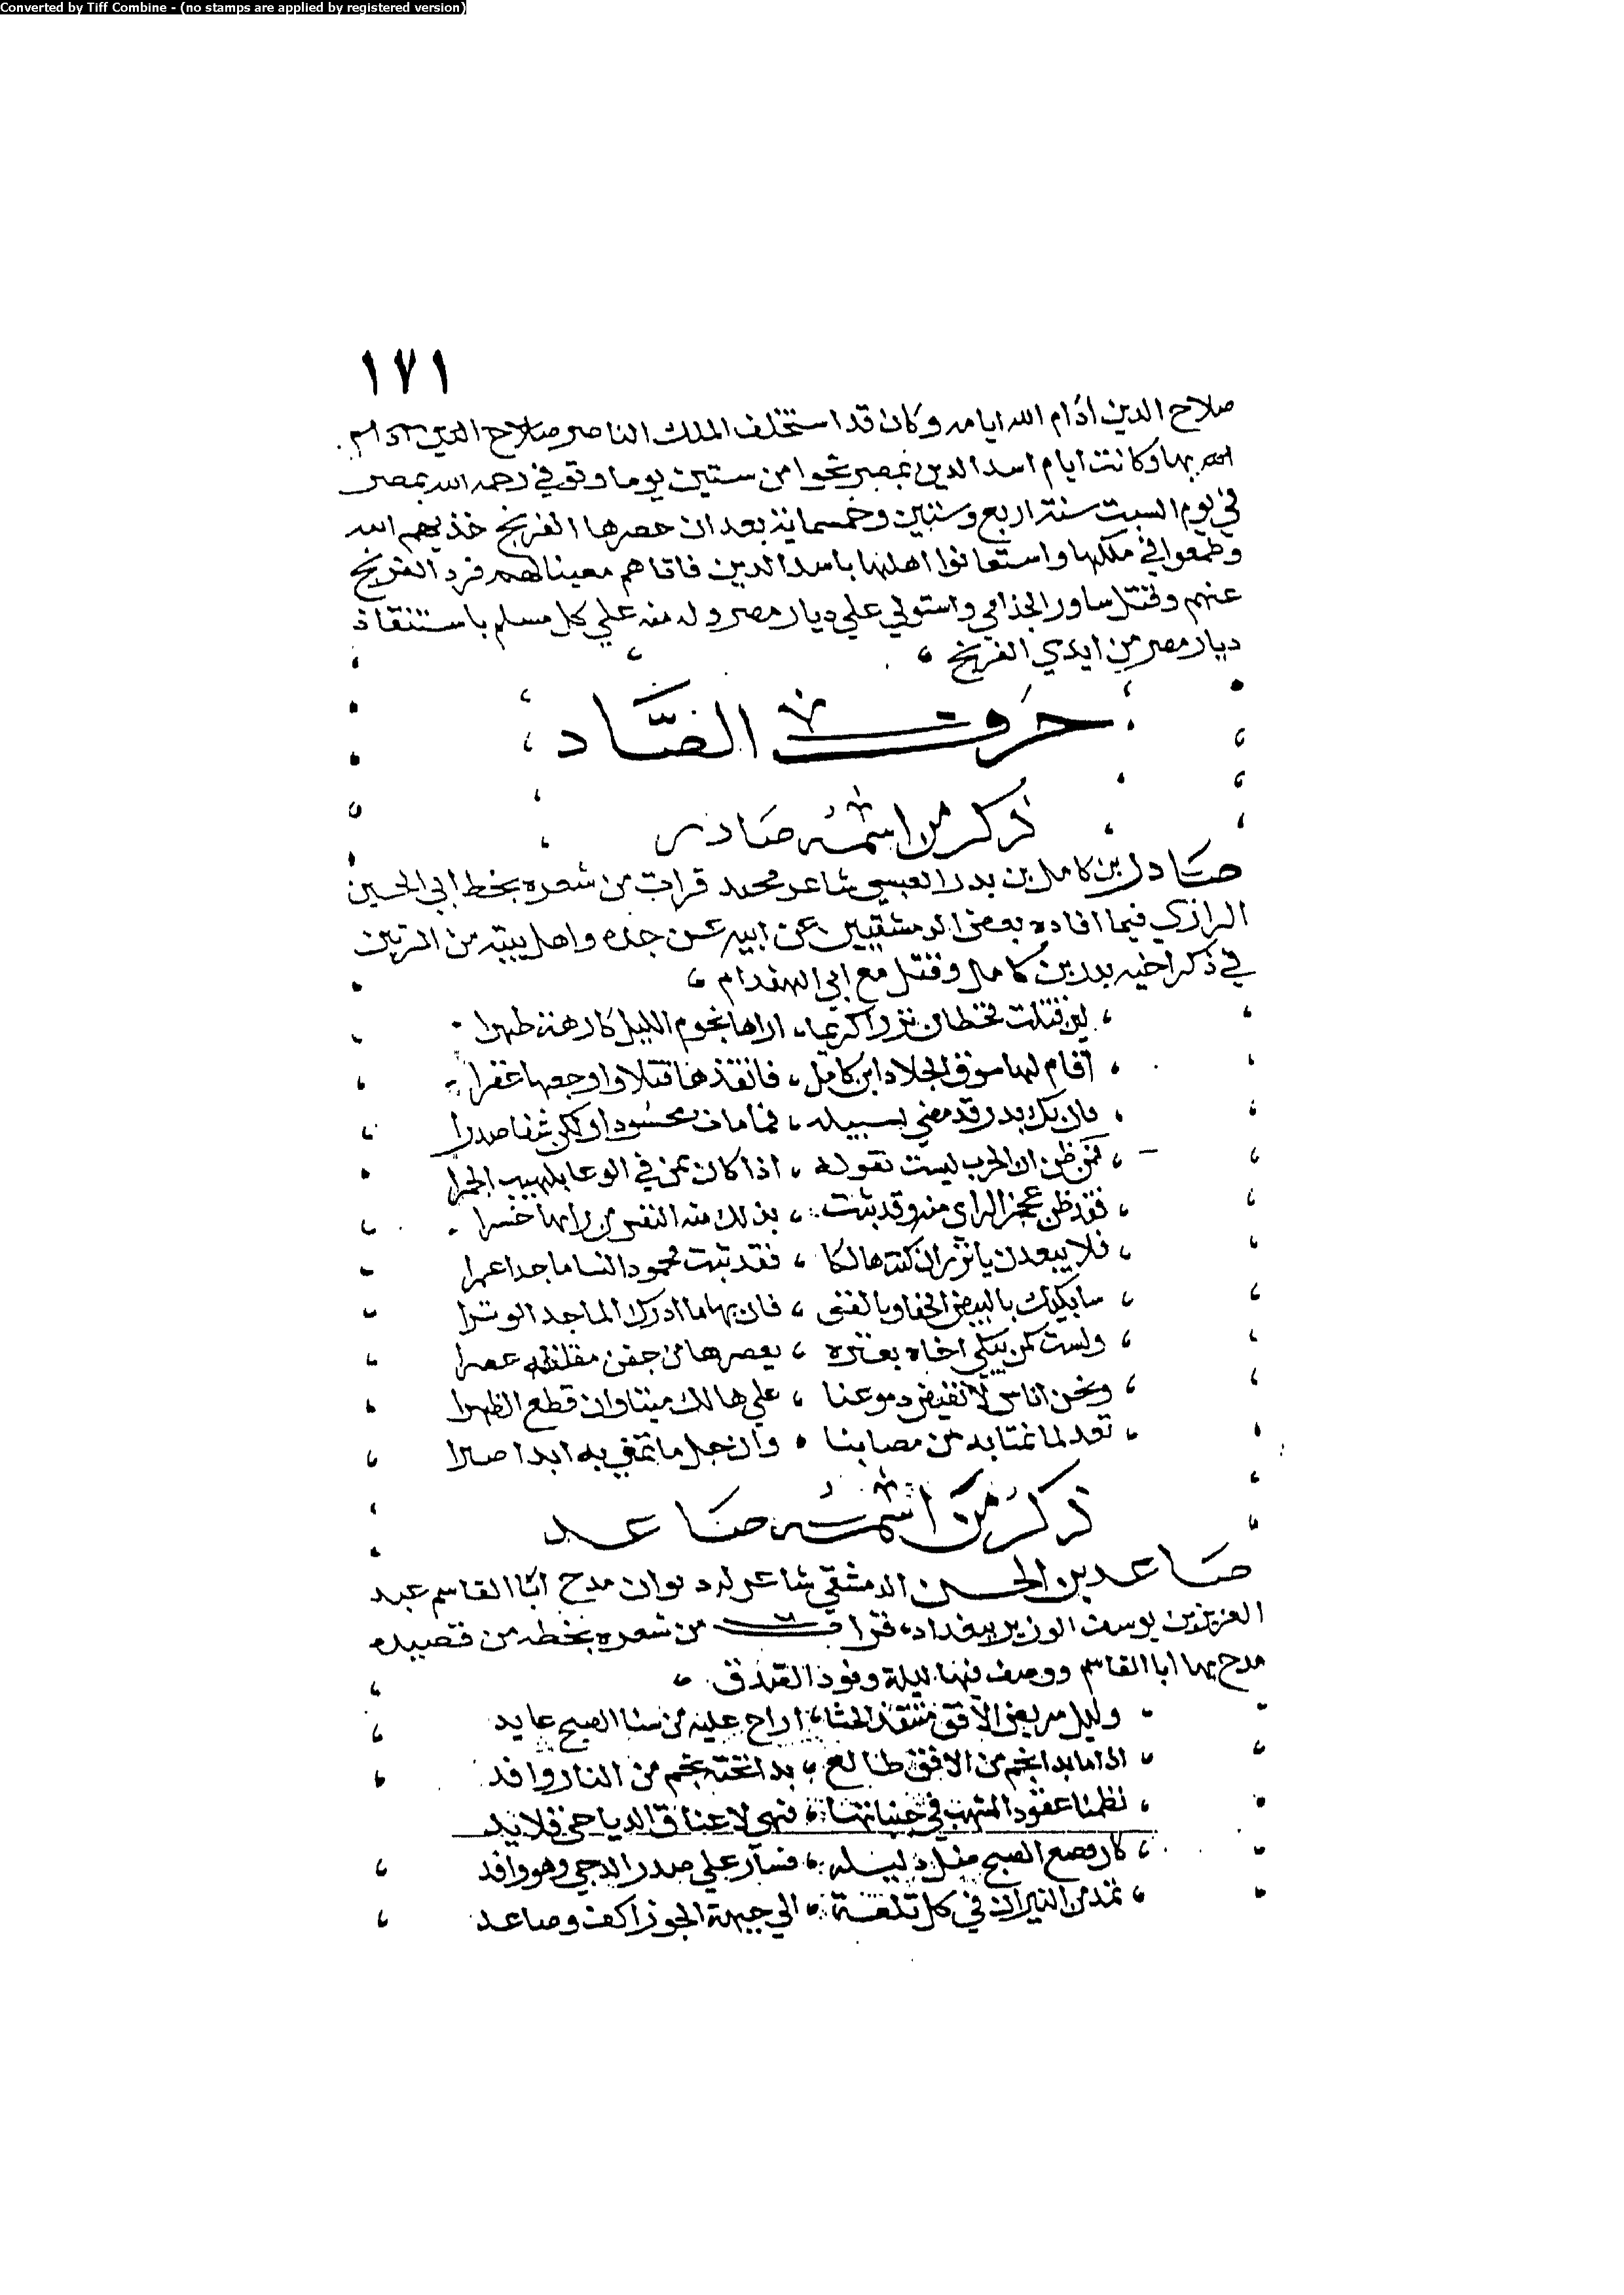 Converted by Tiff Combine - (no stamps are applied by registered version)
١٧١
صلاح الدين ادام الله ايامه وكان قد استخلف الملك الناصر صلاح الدين ادام
الله بها وكانت ايام اسد الدين بمصر نحوا من ستين يوما وتوفي رحمه الله بمصر
في يوم السبت سنة اربع وستين وخمسماية بعد ان حصرها الفرنج خذلهم الله
وطمعوا في ملكها واستعانوا اهلها باسد الدين فاتاهم معينا لهم فرد الفرنج
عنهم وقتل ساور الجذامي واستولي علي ديار مصر وله منه علي كل مسلم باستنقاذ
ديار مصر من ايدي الفرنج
حرف الصَّاد
ذكر من اسمه صادر
صادر بن كامل بن بدر العبسي شاعر محيد قرات من شعره بخط ابي الحسين
الرازي فيما افاده بعض الدمشقيين عن ابيه عن جده واهل بيته من المرتين
في ذكر اخيه بدر بن كامل وقتل مع ابي الهندام
لين قتلت قحطان كريما، اراها نجوم الليل كارهة ظهرا
اقام لها سوق الجلاد ابن كامل، فانقذها قتلا واوجعها عقرا
فان يك بدر قد مضي لسبيله، فما مات محسودا ولكن شفا صدرا
فمن ظن ان الحرب ليست تقوله، اذا كان ممن في الوعا يلهب الجمرا
فقد ظن عجز الراي منه وقد بثت، بذلك منه النفس من رايها خسرا
فلا يبعدن يا ان كنت هالكا، فقد ثبت محمود النسا ماجدا عمرا
سابكيك بالبيض الخفاو بالفنى، فان بها ما ادرك الماجد الوترا
ولست كمن يبكي اخاه بعبرة، يعصرها من جفن مقلته عصرا
ونحن اناس لا تفيض دموعنا، علي هالك منا وان قطع الظهرا
نعد لما نمتا به من مصابنا، وان جل ما نمني به ابدا صبرا
ذكر من اسمه صاعد
صاعد بن الحسن الدمشقي شاعر له ديوان مدح ابا القاسم عبد
العزيز بن يوسف الوزير ببغداد، قرات من شعره بخطه من قصيده
مدح بها ابا القاسم ووصف فيها ليلة وقود
وليل مريض الافق الحشا، اراح عليه من سنا الصبح عايد
اذا ما بدا نجم من الافق طالع، بدا تحته نجم من النار وافد
نظمنا عقود الشهب في جنباتها، فهي لاعناق الدياجي قلايد
كان وضع الصبح دليله، فسار علي صدر الدجي وهو وافد
تمد من النيران في كل تلعة، الي جبهة الجوزا كف وصاعد